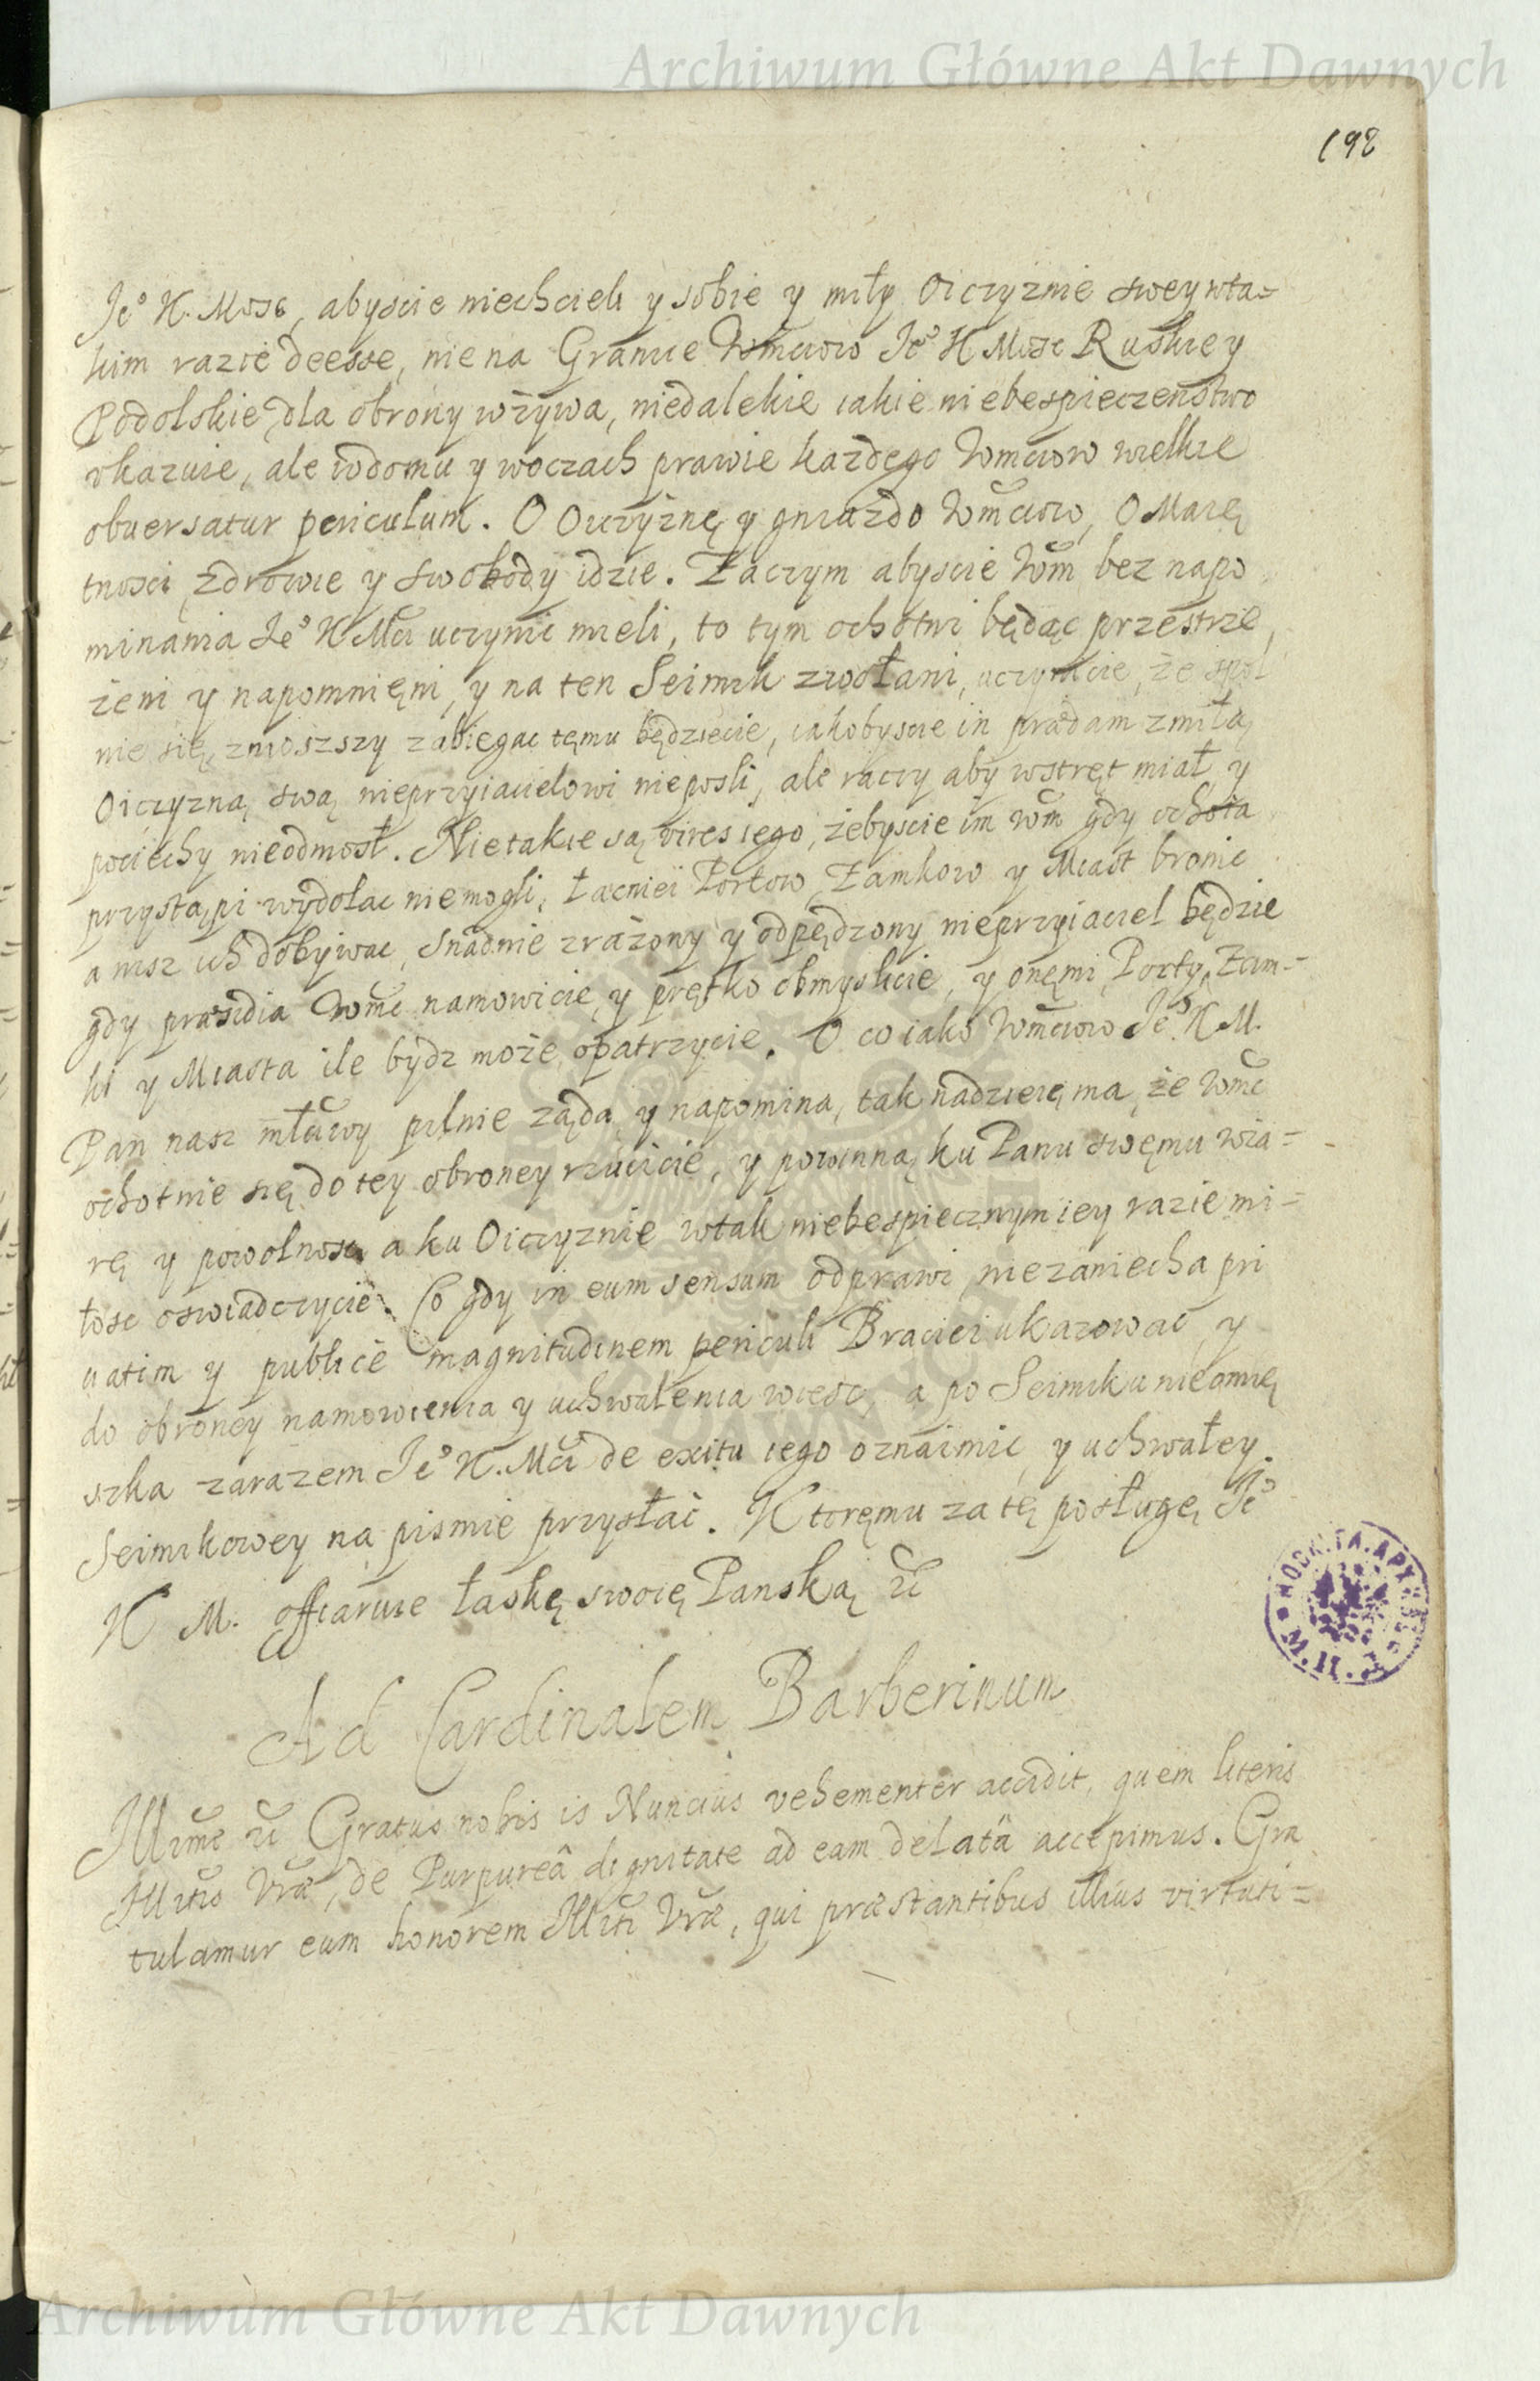 Archiwum Główne Akt Dawnych
198
Je° K. Mosc, abyscie niechcieli y sobie y miły Oiczyznie swey wta=
kim razie deesse, nie na Granice Wmciow Je° K Mosc Ruskie y
Podolskie dla obrony wzywa, niedalekie iakie niebespieczenstwo
vkazuie, ale wdomu y woczach prawie kazdego Wmciow wielkie
obuersatur periculum. O Oiczyznę y gniazdo Wmciow, O Maię
tnosci, zdrowie y swobody idzie. Zaczym abyscie Wm bez napo
minania Je° K Mci uczynic mieli, to tym ochotni będąc przestrze
żeni y napomnięni, y na ten Seimik zwołani, uczynicie, że spol
nie się zniosszy zabiegac tęmu będziecie, iakobyscie in prædam zmiłą
Oiczyzną swą nieprzyiacielowi nieposli, ale raczy aby wstręt miał y
pociechy nieodniosł. Nie takie są vires iego, żebyscie im Wm gdy ochota
przystąpi wydołac niemogli, łacniei Portow, Zamkow y Miast bronic
a nisz ich dobywac, snadnie zrażony y odpędzony nieprzyiaciel będzie
gdy præsidia Wmc namowicie, y prętko obmyslicie, y onęmi Porty, Zam=
ki y Miasta ile bydz może opatrzycie. O co iako Wmciow Je° K M.
Pan nasz młciwy pilnie ząda y napomina, tak nadzieię ma, że Wmc
ochotnie się do tey obroney rzucicie, y powinną ku Panu swęmu wia=
rę y powolnosc a ku Oiczyznie wtak niebespiecznym iey razie mi=
łosc oswiadczycie. Co gdy in eum sensum odprawi, niezaniecha pri
uatim y publicè magnitudinem periculi Braciei ukazowac, y
do obroney namowienia y uchwalenia wiesc, a po Seimiku nieomię
szka zarazem Je° K. Mci de exitu iego oznaimic, y uchwałey
Seimikowey na pismie przysłac. Ktoręmu za tę posługę Je°
K M. offiaruie łaskę swoię Panską etc
Ad Cardinalem Barberinum
Illime etc Gratus nobis is Nuncius vehementer accidit, quem literis
Illitis Vræ, de Purpureâ dignitate ad eam delatâ accepimus. Gra
tulamur eum honorem Illiti Vræ, qui præstantibus illius virtuti=
Archiwum Główne Akt Dawnych